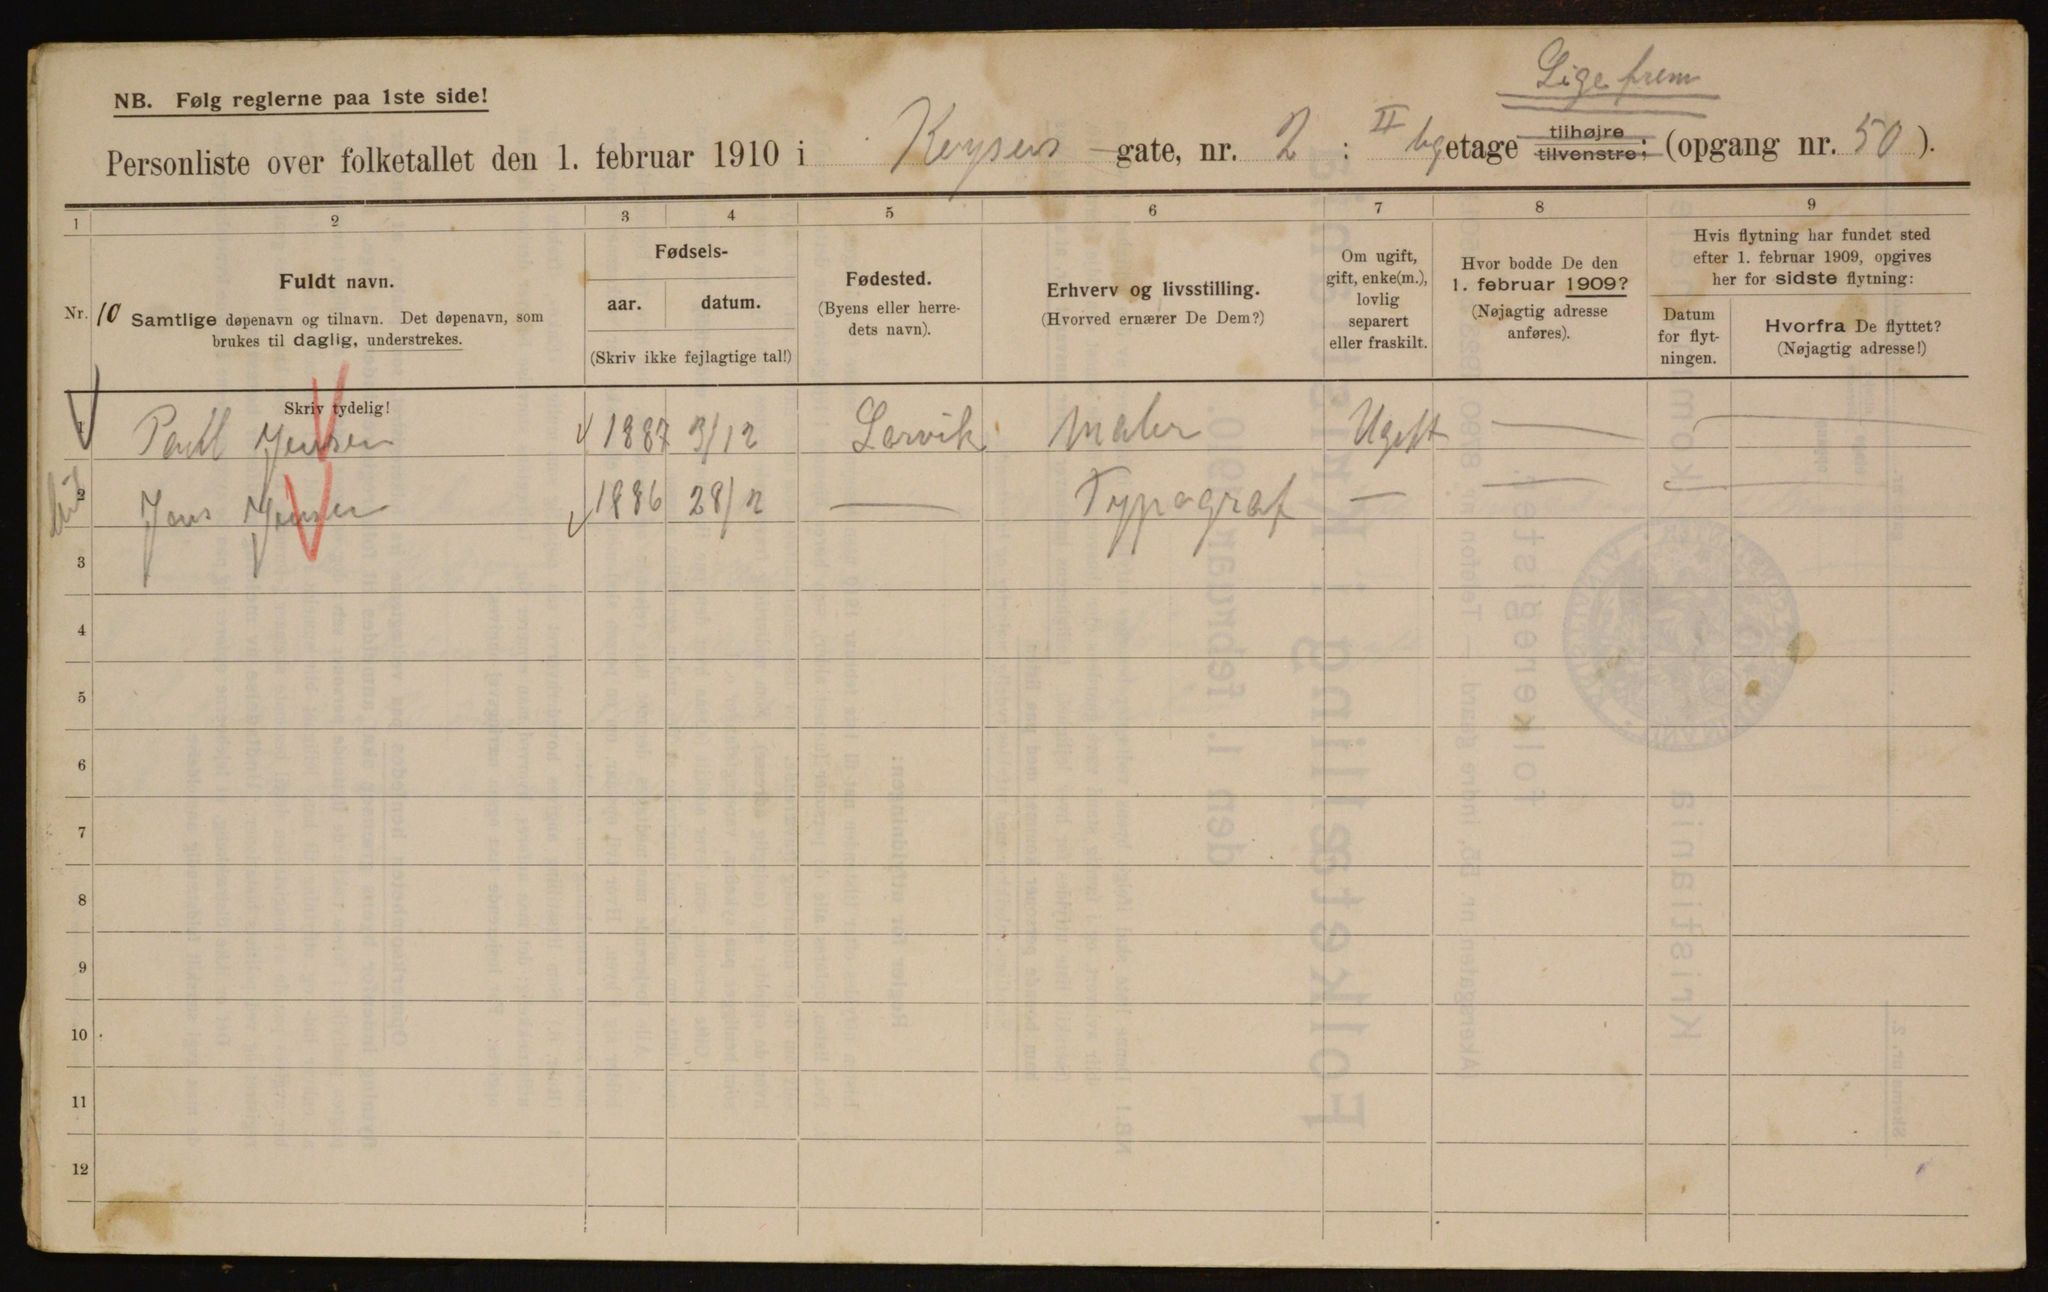 Lige frem
NB. Følg reglerne paa 1ste side!
Personliste over folketallet den 1. februar 1910 i Keysers gate, nr. 2 : II etage tilhøjre tilvenstre; (opgang nr. 50 ).
1 2 3 4 5 6 7 8 9
Nr. 10
Fuldt navn.
Samtlige døpenavn og tilnavn. Det døpenavn, som
brukes til daglig, understrekes.
Fødsels-
aar. datum.
(Skriv ikke fejlagtige tal!)
Fødested.
(Byens eller herre-
dets navn).
Erhverv og livsstilling.
(Hvorved ernærer De Dem?)
Om ugift,
gift, enke(m.),
lovlig
separert
eller fraskilt.
Hvor bodde De den
1. februar 1909?
(Nøjagtig adresse
anføres).
Hvis flytning har fundet sted
efter 1. februar 1909, opgives
her for sidste flytning:
Datum
for flyt-
ningen.
Hvorfra De flyttet?
(Nøjagtig adresse!)
Skriv tydelig!
1 Paul Jensen 1887 3/12 Larvik Maler Ugift —
2 Jens Jensen 1886 28/2 — Typograf — —
3
4
5
6
7
8
9
10
11
12